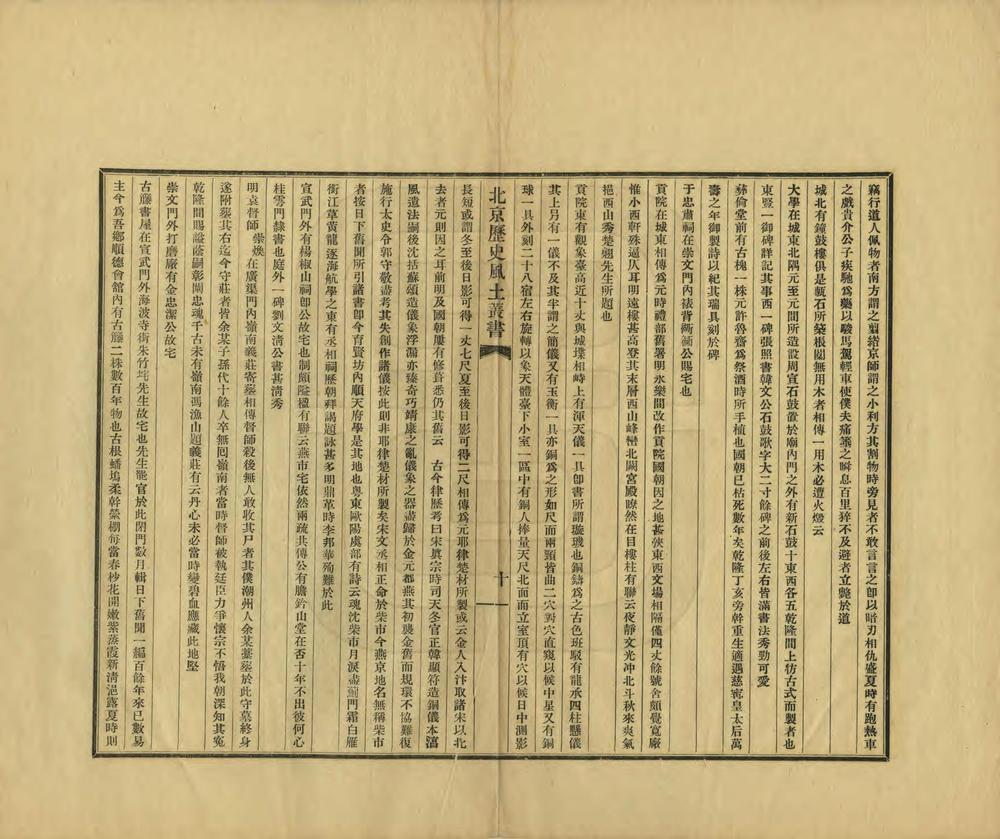 竊行道人佩物者南方謂之翦綹京師謂之小利方其割物時旁見者不敢言言之卽以暗刃相仇盛夏時有跑熱車
之戲貴介公子疾馳爲樂以駿馬駕輕車使僕夫痛箠之瞬息百里猝不及避者立斃於道
城北有鐘鼓樓俱是甎石所築榱闥無用木者相傳一用木必遭火燬云
大學在城東北隅元至元間所造設周宣石鼓置於廟內門之外有新石鼓十東西各五乾隆間上仿古式而製者也
東豎一御碑詳記其事西一碑張照書韓文公石鼓歌字大二寸餘碑之前後左右皆滿書法秀勁可愛
彝倫堂前有古槐一株元許魯齋爲祭酒時所手植也國朝已枯死數年矣乾隆丁亥旁幹重生適遇慈甯皇太后萬
壽之年御製詩以紀其瑞具刻於碑
于忠肅祠在崇文門內裱背衚衕公賜宅也
貢院在城東相傳爲元時禮部舊署明永樂間改作貢院國朝因之地甚俠東西文場相隔僅四丈餘號舍頗覺寬厰
惟小西軒殊逼仄耳明遠樓甚高登其末層西山峰巒北闕宮殿瞭然在目樓柱有聯云夜靜文光冲北斗秋來爽氣
挹西山秀楚翹先生所題也
貢院東有觀象臺高近十丈與城堞相峙上有渾天儀一具卽書所謂璇璣也銅鑄爲之古色班駁有龍承四柱懸儀
其上另有一儀不及其半謂之簡儀又有玉衡一具亦銅爲之形如尺而兩頭皆曲二穴對穴直窺以候中星又有銅
球一具外刻二十八宿左右旋轉以象天體臺下小室一區中有銅人捧量天尺北面而立室頂有穴以候日中測影
北京歷史風土叢書
十
長短或謂冬至後日影可得一丈七尺夏至後日影可得二尺相傳爲元耶律楚材所製或云金人入汴取諸宋以北
去者元則因之耳前明及國朝屢有修葺悉仍其舊云　古今律歷考曰宋眞宗時司天冬官正韓顯符造銅儀本淳
風遺法嗣後沈括蘇頌造儀象浮漏亦臻奇巧靖康之亂儀象之器盡歸於金元都燕其初襲金舊而規環不協難復
施行太史令郭守敬盡考其失創作諸儀按此則非耶律楚材所製矣宋文丞相正命於柴市今燕京地名無稱柴市
者按日下舊聞所引諸書卽今育賢坊內順天府學是其地也粵東歐陽虞部有詩云魂沈柴市月淚盡薊門霜白雁
銜江草黃龍逐海航學之東有丞相祠歷朝碑碣題詠甚多明鼎革時李邦華殉難於此
宣武門外有楊椒山祠卽公故宅也制頗隘楹有聯云燕市宅依然兩疏共傳公有膽鈐山堂在否十年不出彼何心
桂雩門隸書也庭外一碑劉文淸公書甚淸秀
明袁督師崇煥在廣渠門內嶺南義莊寄葬相傳督師殺後無人敢收其尸者其僕潮州人余某藁葬於此守墓終身
遂附葬其右迄今守莊者皆余某子孫代十餘人卒無回嶺南者當時督師被執廷臣力爭懷宗不悟我朝深知其寃
乾隆間賜諡蔭嗣彰闡忠魂千古未有嶺南馮漁山題義莊有云丹心未必當時變碧血應藏此地堅
崇文門外打磨廠有金忠潔公故宅
古籐書屋在宣武門外海波寺街朱竹垞先生故宅也先生罷官於此閉門數月輯日下舊聞一編百餘年來已數易
主今爲吾鄉順德會館內有古籐二株數百年物也古根蟠塢柔幹縈棚每當春杪花開嫩紫蒸霞新淸浥露夏時則